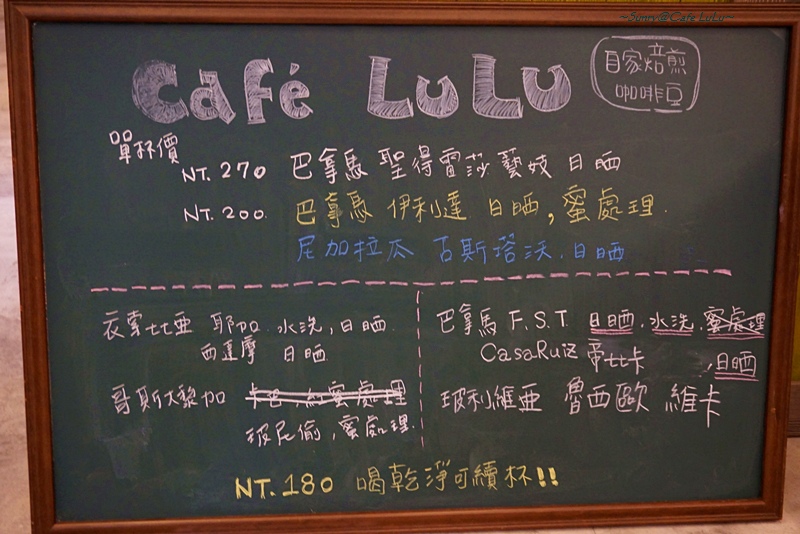 ~Sunny@Cafe LuLu~
Café LuLu
自家焙煎
咖啡豆
單杯價
NT. 270 巴拿馬 聖得雷莎 藝妓 日晒
NT. 200 巴拿馬 伊利達 日晒, 蜜處理.
尼加拉瓜 百斯塔沃. 日晒
衣索比亞 耶加. 水洗, 日晒.
西達摩 日晒
哥斯大黎加 卡巴, 紅蜜處理
坂尼偷, 蜜處理.
巴拿馬 F.S.T. 日晒. 水洗. 蜜處理
CasaRuiz 帝比卡 , 日晒
玻利維亜 魯西歐 維卡
NT. 180 喝乾淨可續杯!!